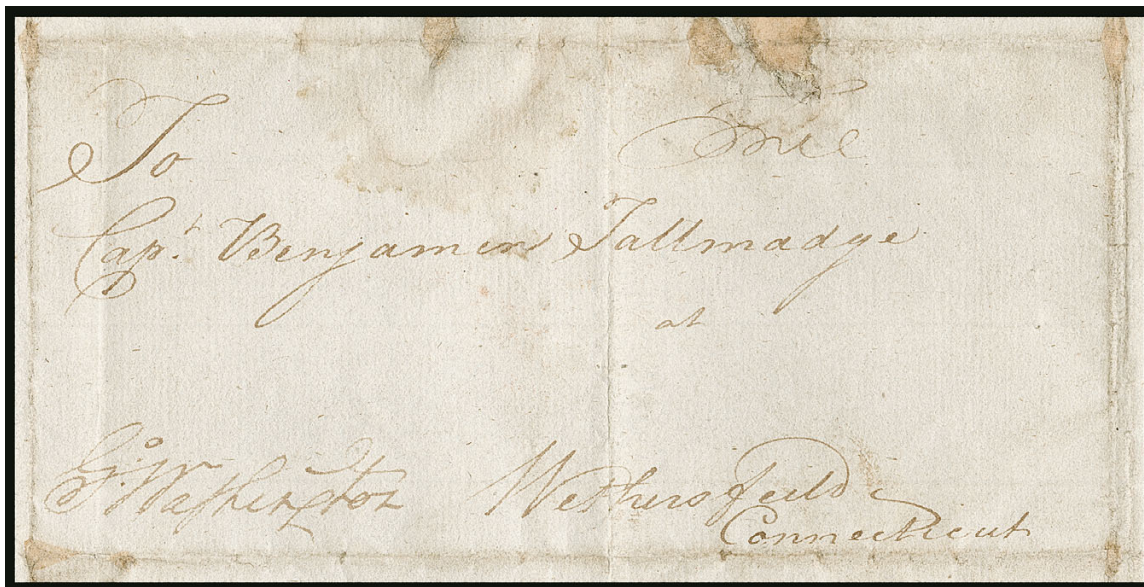 To Free
Capt. Benjamin Tallmadge
at
Go: Washington Wethersfeild
Connecticut